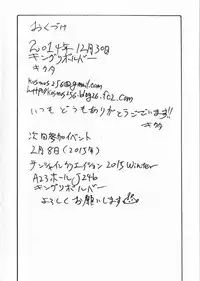 おくづけ
2014年12月30日
キングリボルバー
キクタ
kosmos256@gmail.com
http://kosmos256.blog26.fc2.com
いつもどうもありがとうございます!!
キクタ
次回参加イベント
2月8日(2015年)
サンシャインクリエイション2015 Winter
A23ホール J24b
キングリボルバー
よろしくお願いします